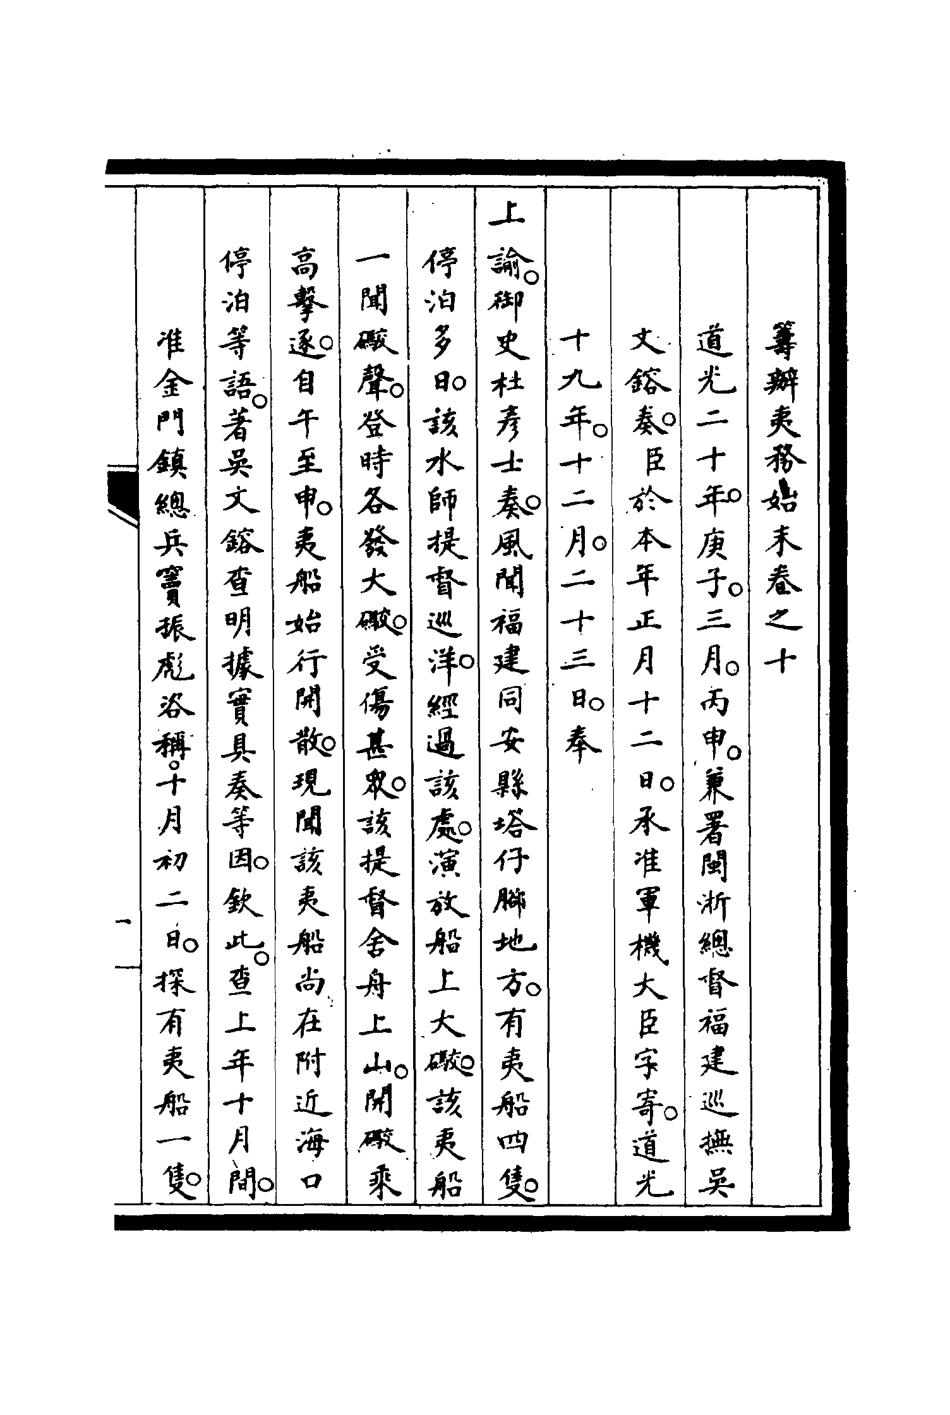 籌辦夷務始末卷之十
道光二十年。庚子。三月。丙申。兼署閩浙總督福建巡撫吳
文鎔奏。臣於本年正月十二日。承准軍機大臣字寄。道光
十九年。十二月。二十三日。奉
上諭。御史杜彥士奏。風聞福建同安縣塔仔腳地方。有夷船四隻。
停泊多日。該水師提督巡洋。經過該處。演放船上大礮。該夷船
一聞礮聲。登時各發大礮。受傷甚眾。該提督舍舟上山。開礮乘
高擊逐。自午至申。夷船始行開散。現聞該夷船尚在附近海口
停泊等語。著吳文鎔查明據實具奏等因。欽此。查上年十月間。
准金門鎮總兵竇振彪咨稱。十月初二日。探有夷船一隻。
一